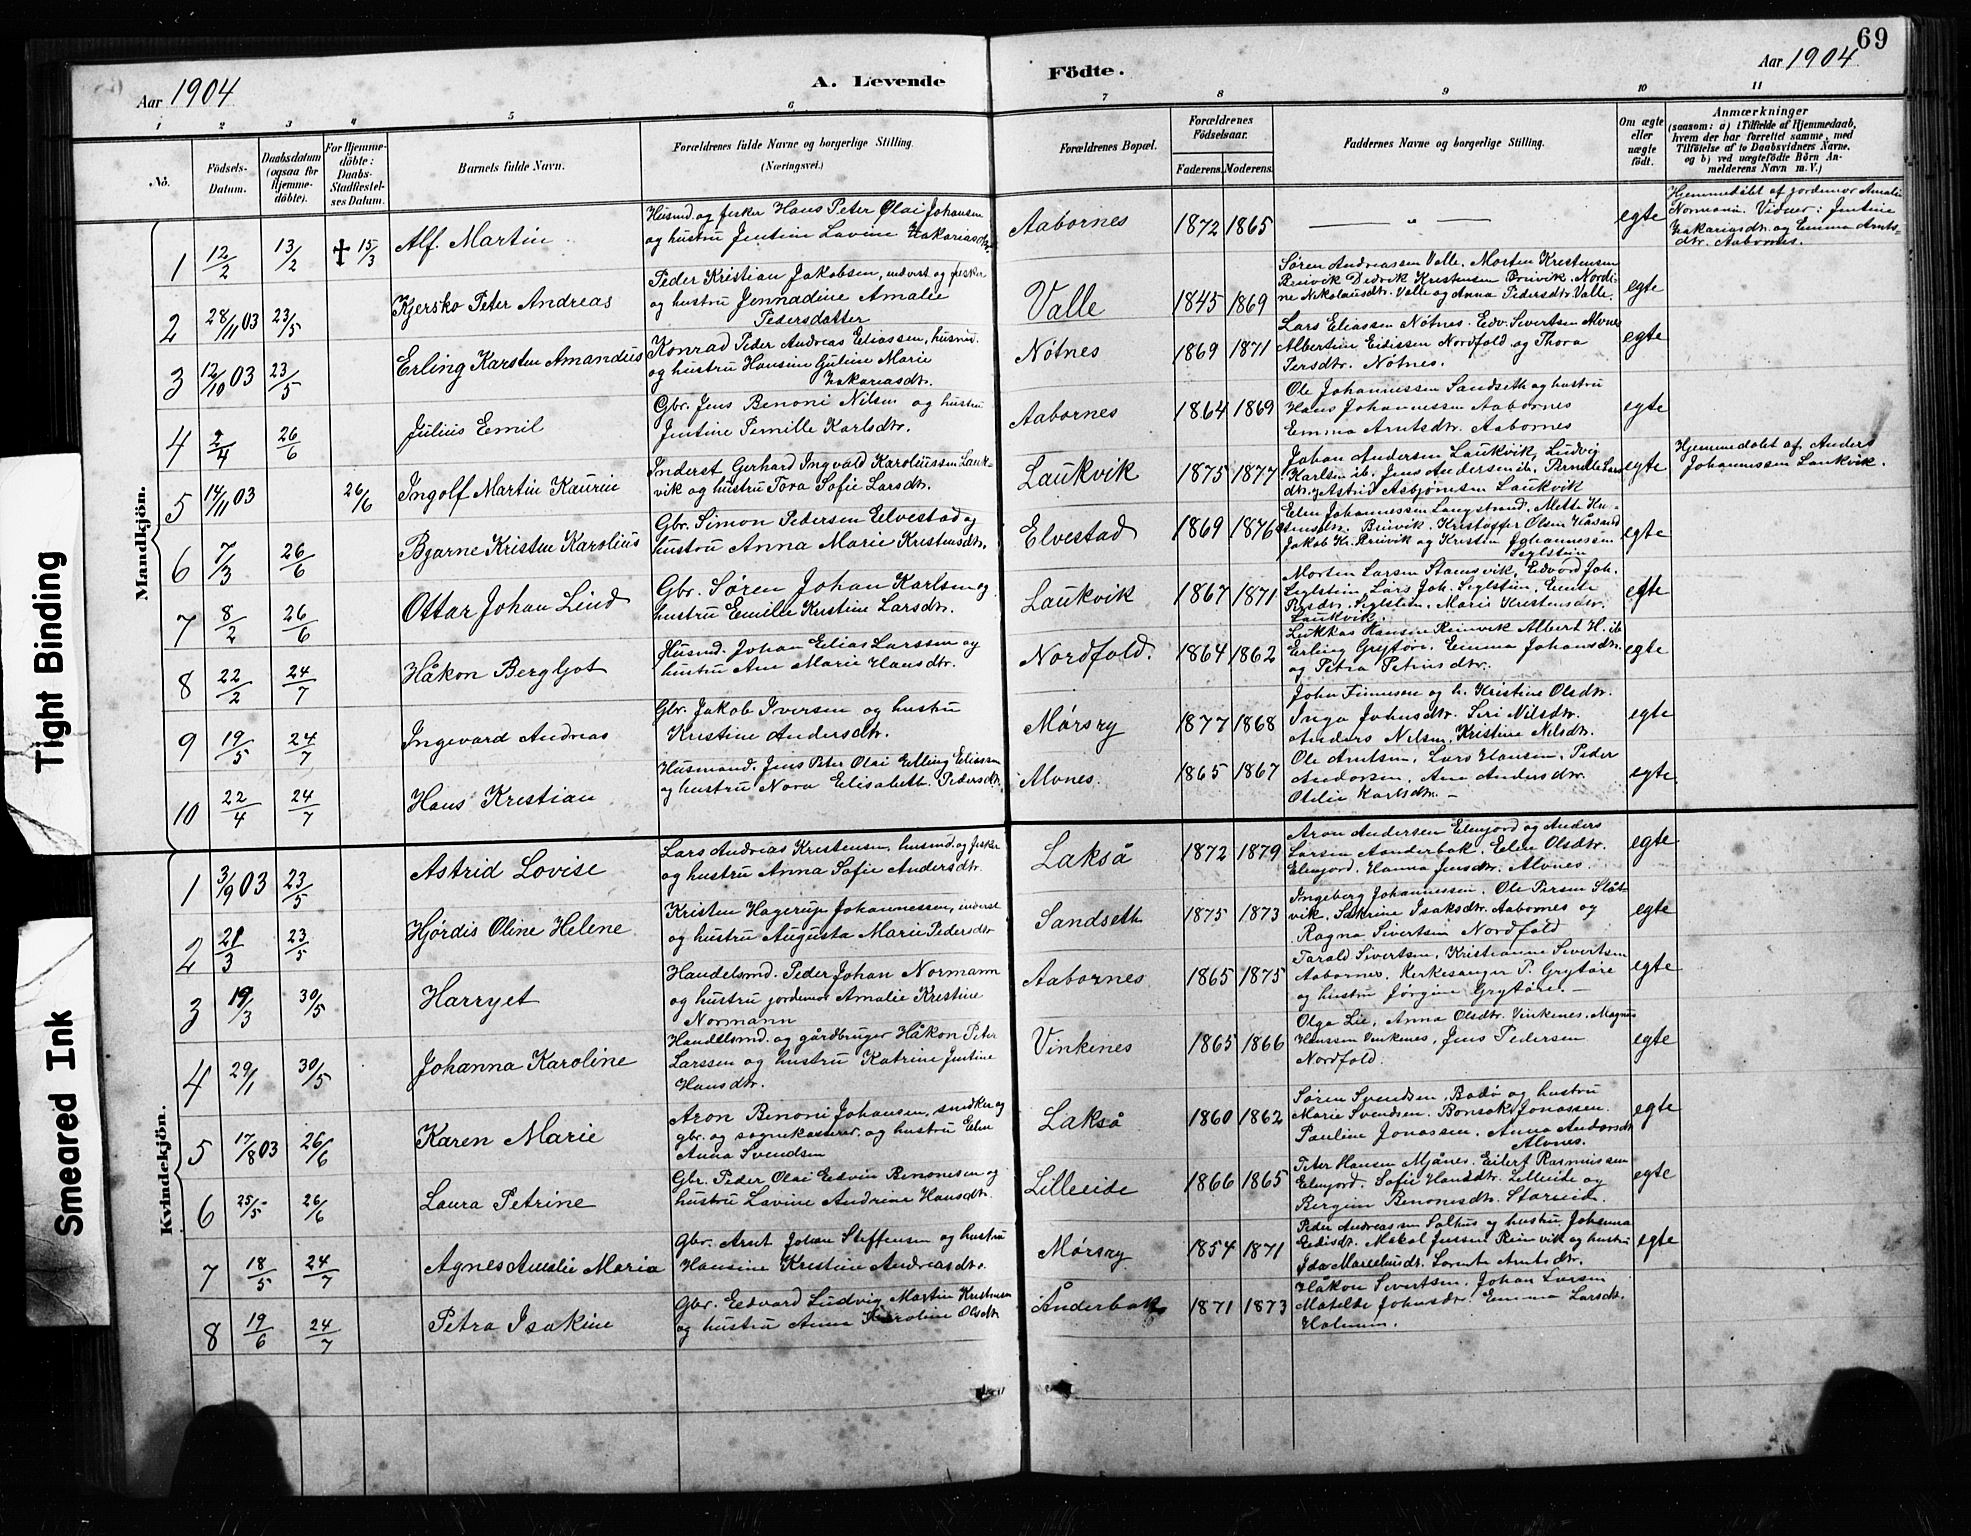 69
Aar 1904
A. Levende Födte.
Aar 1904
1 2 3 4 5 6 7 8 9 10 11
No.
Födsels-Datum.
Daabsdatum (ogsaa for Hjemme-döbte).
For Hjemme-döbte: Daabs-Stadfæstel-ses Datum.
Barnets fulde Navn.
Forældrenes fulde Navne og borgerlige Stilling.
(Næringsvei.)
Forældrenes Bopæl.
Forældrenes Födselsaar.
Faderens. Moderens.
Faddernes Navne og borgerlige Stilling.
Om ægte eller uægte født.
Anmærkninger
(saasom: a) i Tilfælde af Hjemmedaab,
hvem der har forrettet samme, med
Tilföielse af to Daabsvidners Navne,
og b) ved uægtefödte Börn An-
melderens Navn m. V.)
Mandkjön.
1 12/2 13/2 † 15/3 Alf. Martin
Husmd. og fisker Hans Peter Olai Johansen
og hustru Jentine Lavine Zakariasdtr.
Aabornes 1872 1865 — " — egte
Hjemmedöbt af jordemor Amalie
Normann. Vidner: Jentine
Zakariasdtr. og Emma Arnts-
dtr. Aabornes.
2 28/11 03 23/5 Kjersko Peter Andreas
Peder Kristian Jakobsen, inderst og fisker
og hustru Jennadine Amalie
Pedersdatter
Valle 1845 1869
Søren Andreassen Valle. Morten Kristensen
Brinvik Didrik Kristensen Brinvik. Nordi-
ne Nikolausdtr. Valle og Anna Pedersdtr. Valle.
egte
3 12/10 03 23/5 Erling Karsten Amandus
Konrad Peder Andreas Eliassen, husmd.
og hustru Hansine Guline Marie
Zakariasdtr.
Nötnes 1869 1871
Lars Eliassen Nötnes. Edv. Sivertsen Alvnes
Albertine Eidissen Nordfold og Thora
Persdtr. Nötnes.
egte
4 2/4 26/6 Julius Emil
Gbr. Jens Benoni Nilsen og hustru
Jentine Pernille Karlsdtr.
Aabornes 1864 1869
Ole Johannessen Sandseth og hustru
Hans Johannessen Aabornes
Emma Arntsdtr. Aabornes
egte
5 14/11 03 26/6 Ingolf Martin Kaurin
Inderst Gerhard Ingvald Karoliussen Lauk-
vik og hustru Tora Sofie Larsdtr.
Laukvik 1875 1877
Johan Andersen Laukvik, Ludvig
Karlsen ib. Jens Andersen ib. Lars
dtr. Astrid Asbjørnsen Laukvik
egte
Hjemmedøbt af Anders
Johannssen Laukvik.
6 7/3 26/6 Bjarne Kristen Karolius
Gbr. Simon Pedersen Elvestad og
hustru Anna Marie Kristensdtr.
Elvestad 1869 1876
Elen Johannessen Langstrand, Mette Kri-
stensdtr. Brinvik. Kristoffer Olsen
Jakob Kr. Brinvik og Kristin Johannessen
Seglstein
egte
7 8/2 26/6 Ottar Johan Lind
Gbr. Søren Johan Karlsen og
hustru Emilie Kristine Larsdtr.
Laukvik 1867 1871
Morten Larsen Stamsvik, Edvard Joh.
Seglstein Lars Joh. Seglstein, Emilie
Pedsdtr. Seglstein, Marie Kristensdtr.
Laukvik.
egte
8 22/2 24/7 Håkon Bergljot
Husmd. Johan Elias Larssen og
hustru Ane Marie Hansdtr.
Nordfold. 1864 1862
Lukkas Hansen Reinvik Albert H. ib
Erling Grytøre. Emma Johansdtr.
og Petra Petrinsdtr.
egte
9 19/5 24/7 Ingevard Andreas
Gbr. Jakob Iversen og hustru
Kristine Andersdtr.
Mørsry 1877 1868
John Finnsen og h. Kristine Olsdtr.
Inga Johnsdtr. Seri Nilsdtr.
Anders Nilsen, Kristine Nilsdtr.
egte
10 22/4 24/7 Hans Kristian
Husmand. Jens Peter Olai Elling Eliassen
og hustru Nora Elisabeth Pedersdtr.
Alvnes. 1865 1867
Ole Arntsen, Lars Hansen, Peder
Andersen, Ane Andersdtr.
Otilie Karlsdtr. —
egte
Kvindekjön.
1 3/9 03 23/5 Astrid Lovise
Lars Andreas Kristensen, husmd. og fisker
og hustru Anna Sofie Andersdtr.
Lakså 1872 1879
Aron Andersen Elvnjord og Anders
Larsen Aanderbak, Elen Olsdtr.
Elvnjord. Hanna Jensdtr. Alvnes.
egte
2 21/3 23/5 Hjørdis Oline Helene
Kristen Hagerup Johannessen, inderst
og hustru Augusta Marie Pedersdtr
Sandseth 1875 1873
Ingeberg Johannessen. Ole Persen Slåt-
vik. Sakrine Isaksdtr. Aabornes og
Ragna Sivertsen Nordfold
egte
3 19/3 30/5 Harryet
Handelsmd. Peder Johan Normann
og hustru jordemor Amalie Kristine
Normann
Aabornes 1865 1875
Tarald Sivertsen, Kristianne Sivertsen
Aabornes, Kirkesanger P. Grytøre
og hustru Jørgine Grytøre. —
egte
4 29/1 30/5 Johanna Karoline
Handelsmd. og gårdbruger Håkon Peter
Larssen og hustru Katrine Jentine
Hansdtr.
Vinkenes 1865 1866
Olga Lie, Anna Olsdtr. Vinkenes, Magnus
Hanssen Vinkenes, Jens Pedersen
Nordfold.
egte
5 17/8 03 26/6 Karen Marie
Aron Benoni Johansen, snedker og
gbr. og sognekasserer, og hustru Elen
Anna Svendsen
Lakså 1860 1862
Søren Svendsen, Bodø og hustru
Marie Svendsen. Bonsak Jonassen.
Pauline Jonassen. Anna Andersdtr
Alvnes.
egte
6 25/5 26/6 Laura Petrine
Gbr. Peder Olai Edvin Benonisen og
hustru Lavine Andrine Hansdtr.
Lilleeide 1866 1865
Peter Hansen Mjånes. Eilerf Rasmussen
Elvnjord. Sofie Hansdtr. Lilleeide og
Bergine Benonisdtr. Storeide.
egte
7 18/5 24/7 Agnes Amalie Maria
Gbr. Arnt Johan Steffensen og hustru
Hansine Kristine Andreasdtr.
Mørsry 1854 1871
Peder Andreassen Solhus og hustru Johanna
Eidisdtr. Mekal Jenssen Reinvik og hustru
Ida Marcelinsdtr. Lornte Arntsdtr.
egte
8 19/6 24/7 Petra Isakine
Gbr. Edvard Ludvig Martin Kristensen
og hustru Anna Karoline Olsdtr
Ånderbak 1871 1873
Håkon Sivertsen, Johan Larsen
Matilde Johnsdtr. Emma Larsdtr.
Holmen.
Tight Binding
Smeared Ink